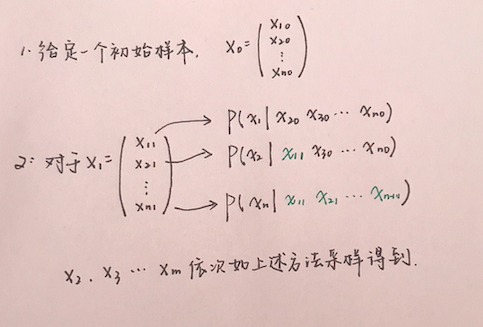 1. 给定一个初始样本. X₀ = (x₁₀ x₂₀ ⋮ xₙ₀)
2: 对于 X₁ = (x₁₁ x₂₁ ⋮ xₙ₁)
→ P(x₁ | x₂₀ x₃₀ ⋯ xₙ₀)
→ P(x₂ | x₁₁ x₃₀ ⋯ xₙ₀)
→ P(xₙ | x₁₁ x₂₁ ⋯ xₙ₋₁₁)
X₂、X₃ ⋯ Xₘ 依次如上述方法采样得到.